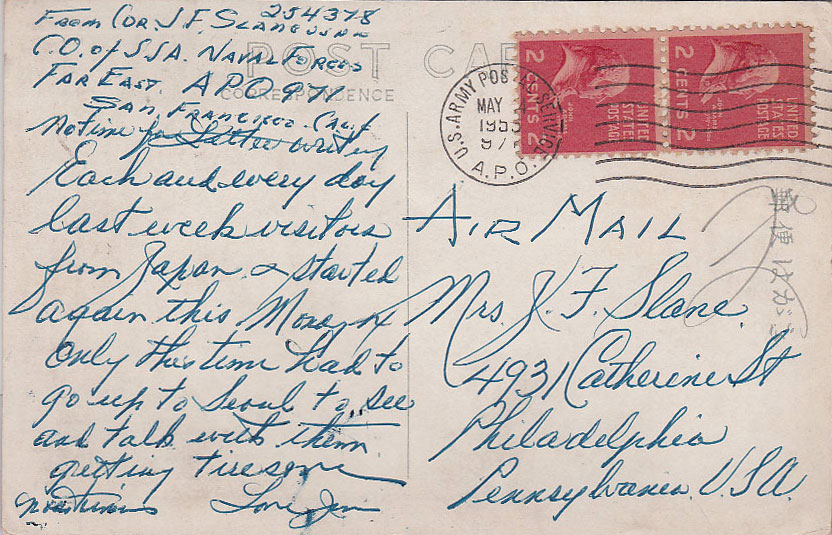 From CDR. J. F. SLANE USN 254378
C.O. of SSA. NAVAL FORCES
FAR EAST. APO 97
SAN FRANCISCO. CALIF
POST CARD
CORRESPONDENCE
No time for Letter writing
Each and every day
last week visitors
from Japan & started
again this Mon
only this time had to
go up to Seoul to see
and talk with them
getting tiresome
Love Jim
2 CENTS 2
UNITED STATES POSTAGE
2 CENTS 2
UNITED STATES POSTAGE
U.S. ARMY POSTAL SERVICE
MAY
1953
97
A.P.O.
AIR MAIL
Mrs. J. F. Slane.
4931 Catherine St
Philadelphia
Pennsylvania. U.S.A.
郵便はがき